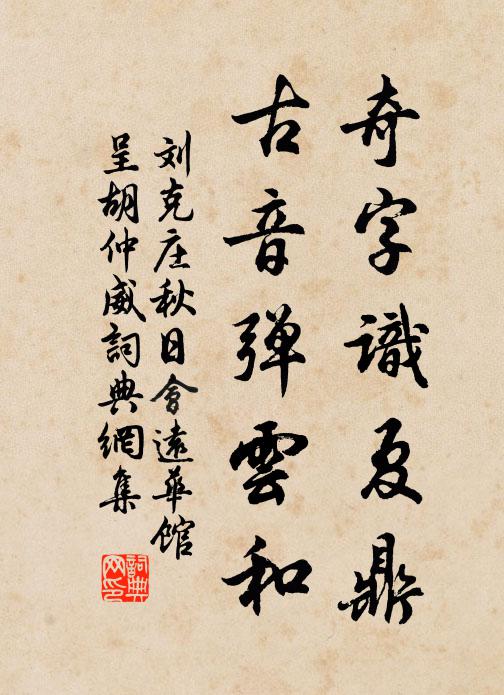 奇字識夏鼎
古音弹雲和
刘克庄秋日會遠華馆
呈胡仲威詞典網集
詞典网印